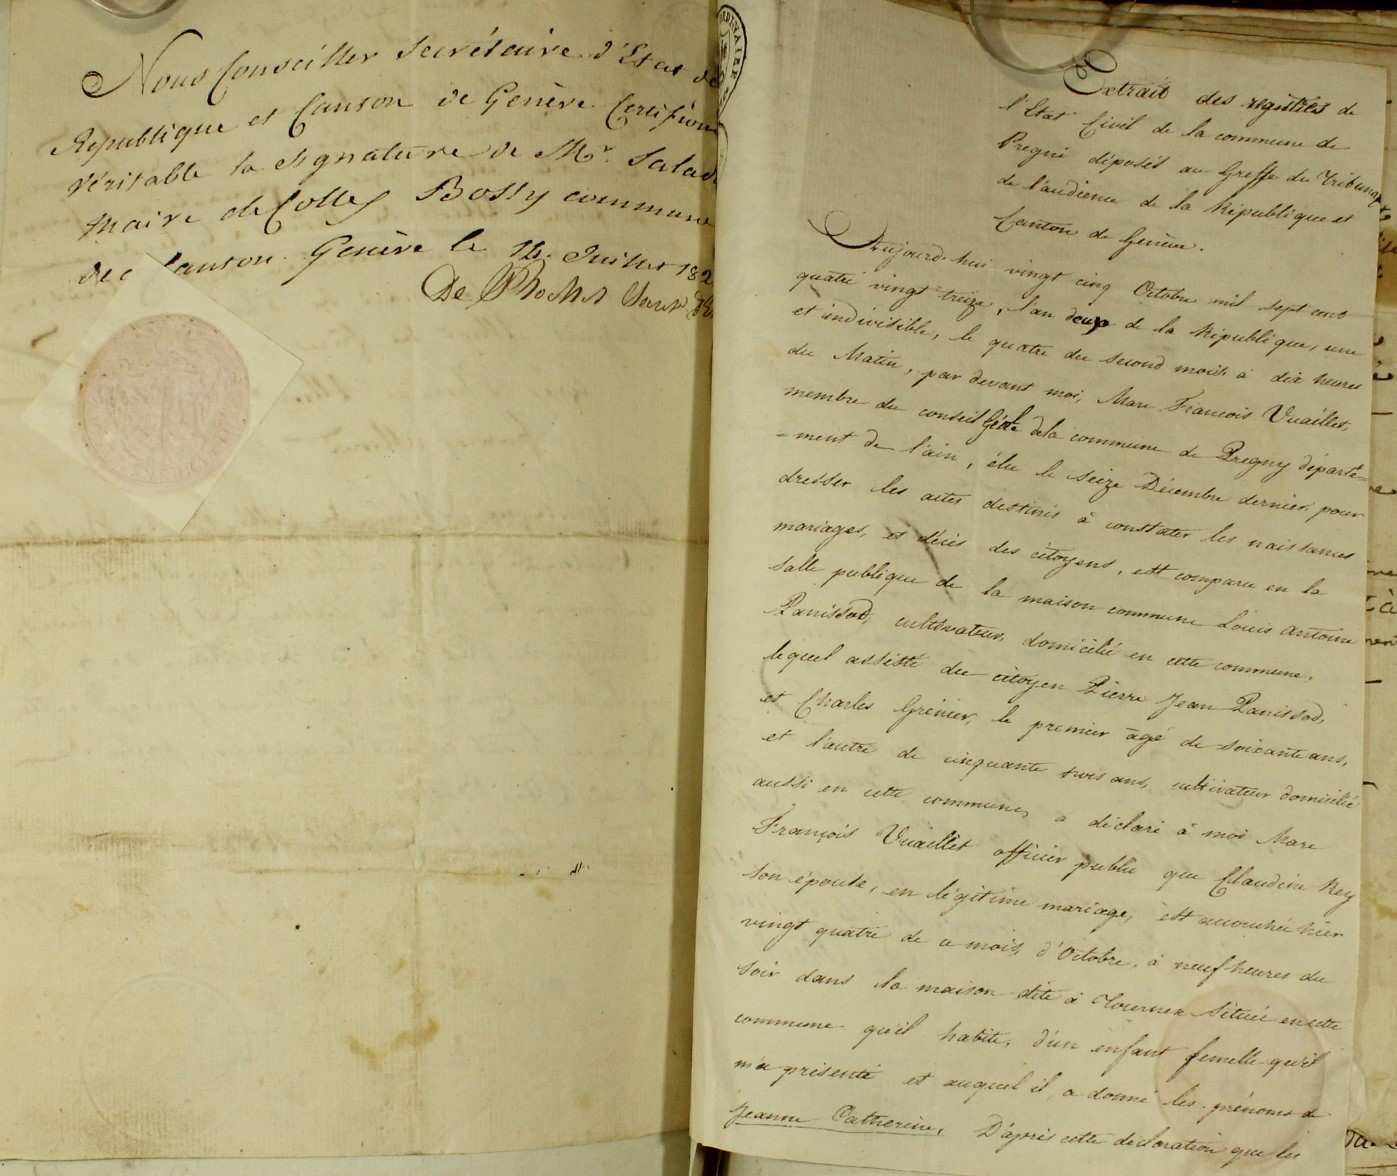 Nous Conseiller Secrétaire d'Etat de
République et Canton de Genève Certifions
Véritable la signature de Mr. Salad
Maire de Collex Bossy commune
de ce Canton. Genève le 14. Juillet 182
De
ORDINAIRE
Extrait des registres de
l'Etat Civil de la commune de
Pregni déposés au Greffe du Tribunal
de l'audience de la République et
Canton de Genève.
Aujourd'hui vingt cinq Octobre mil sept cent
quatre vingt treize, l'an deux de la République, une
et indivisible, le quatre du second mois à dix heures
du Matin, par devant moi, Marc François Vuaillet,
membre du conseil Géral de la commune de Pregny départe=
-ment de l'ain, élu le seize Décembre dernier pour
dresser les actes destinés à constater les naissances
mariages, et décès des citoyens, est comparu en la
salle publique de la maison commune Louis Antoine
Panissod, cultivateur, domicilié en cette commune,
lequel assisté du citoyen Pierre Jean Panissod,
et Charles Grenier, le premier âgé de soixante ans,
et l'autre de cinquante trois ans, cultivateur domicilié
aussi en cette commune, a déclaré à moi Marc
François Vuaillet officier public que Claudine Rey
son épouse, en légitime mariage, est accouchée hier
vingt quatre de ce mois d'Octobre, à neuf heures du
soir dans la maison dite à Tournex située en cette
commune qu'il habite, d'un enfant femelle qu'il
m'a présenté et auquel il a donné les prénoms de
Jeanne Catherine, D'après cette déclaration que les